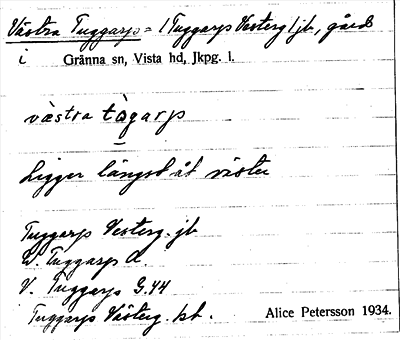 Västra Tuggarp = (Tuggarp Vesterg) jb, gård
i Gränna sn, Vista hd, Jkpg. l.
västra tògarp
Ligger längst åt väster
Tuggarp Vesterg. jb
W. Tuggarp A.
V. Tuggarp G.44
Tuggarp Västerg. kt.
Alice Petersson 1934.